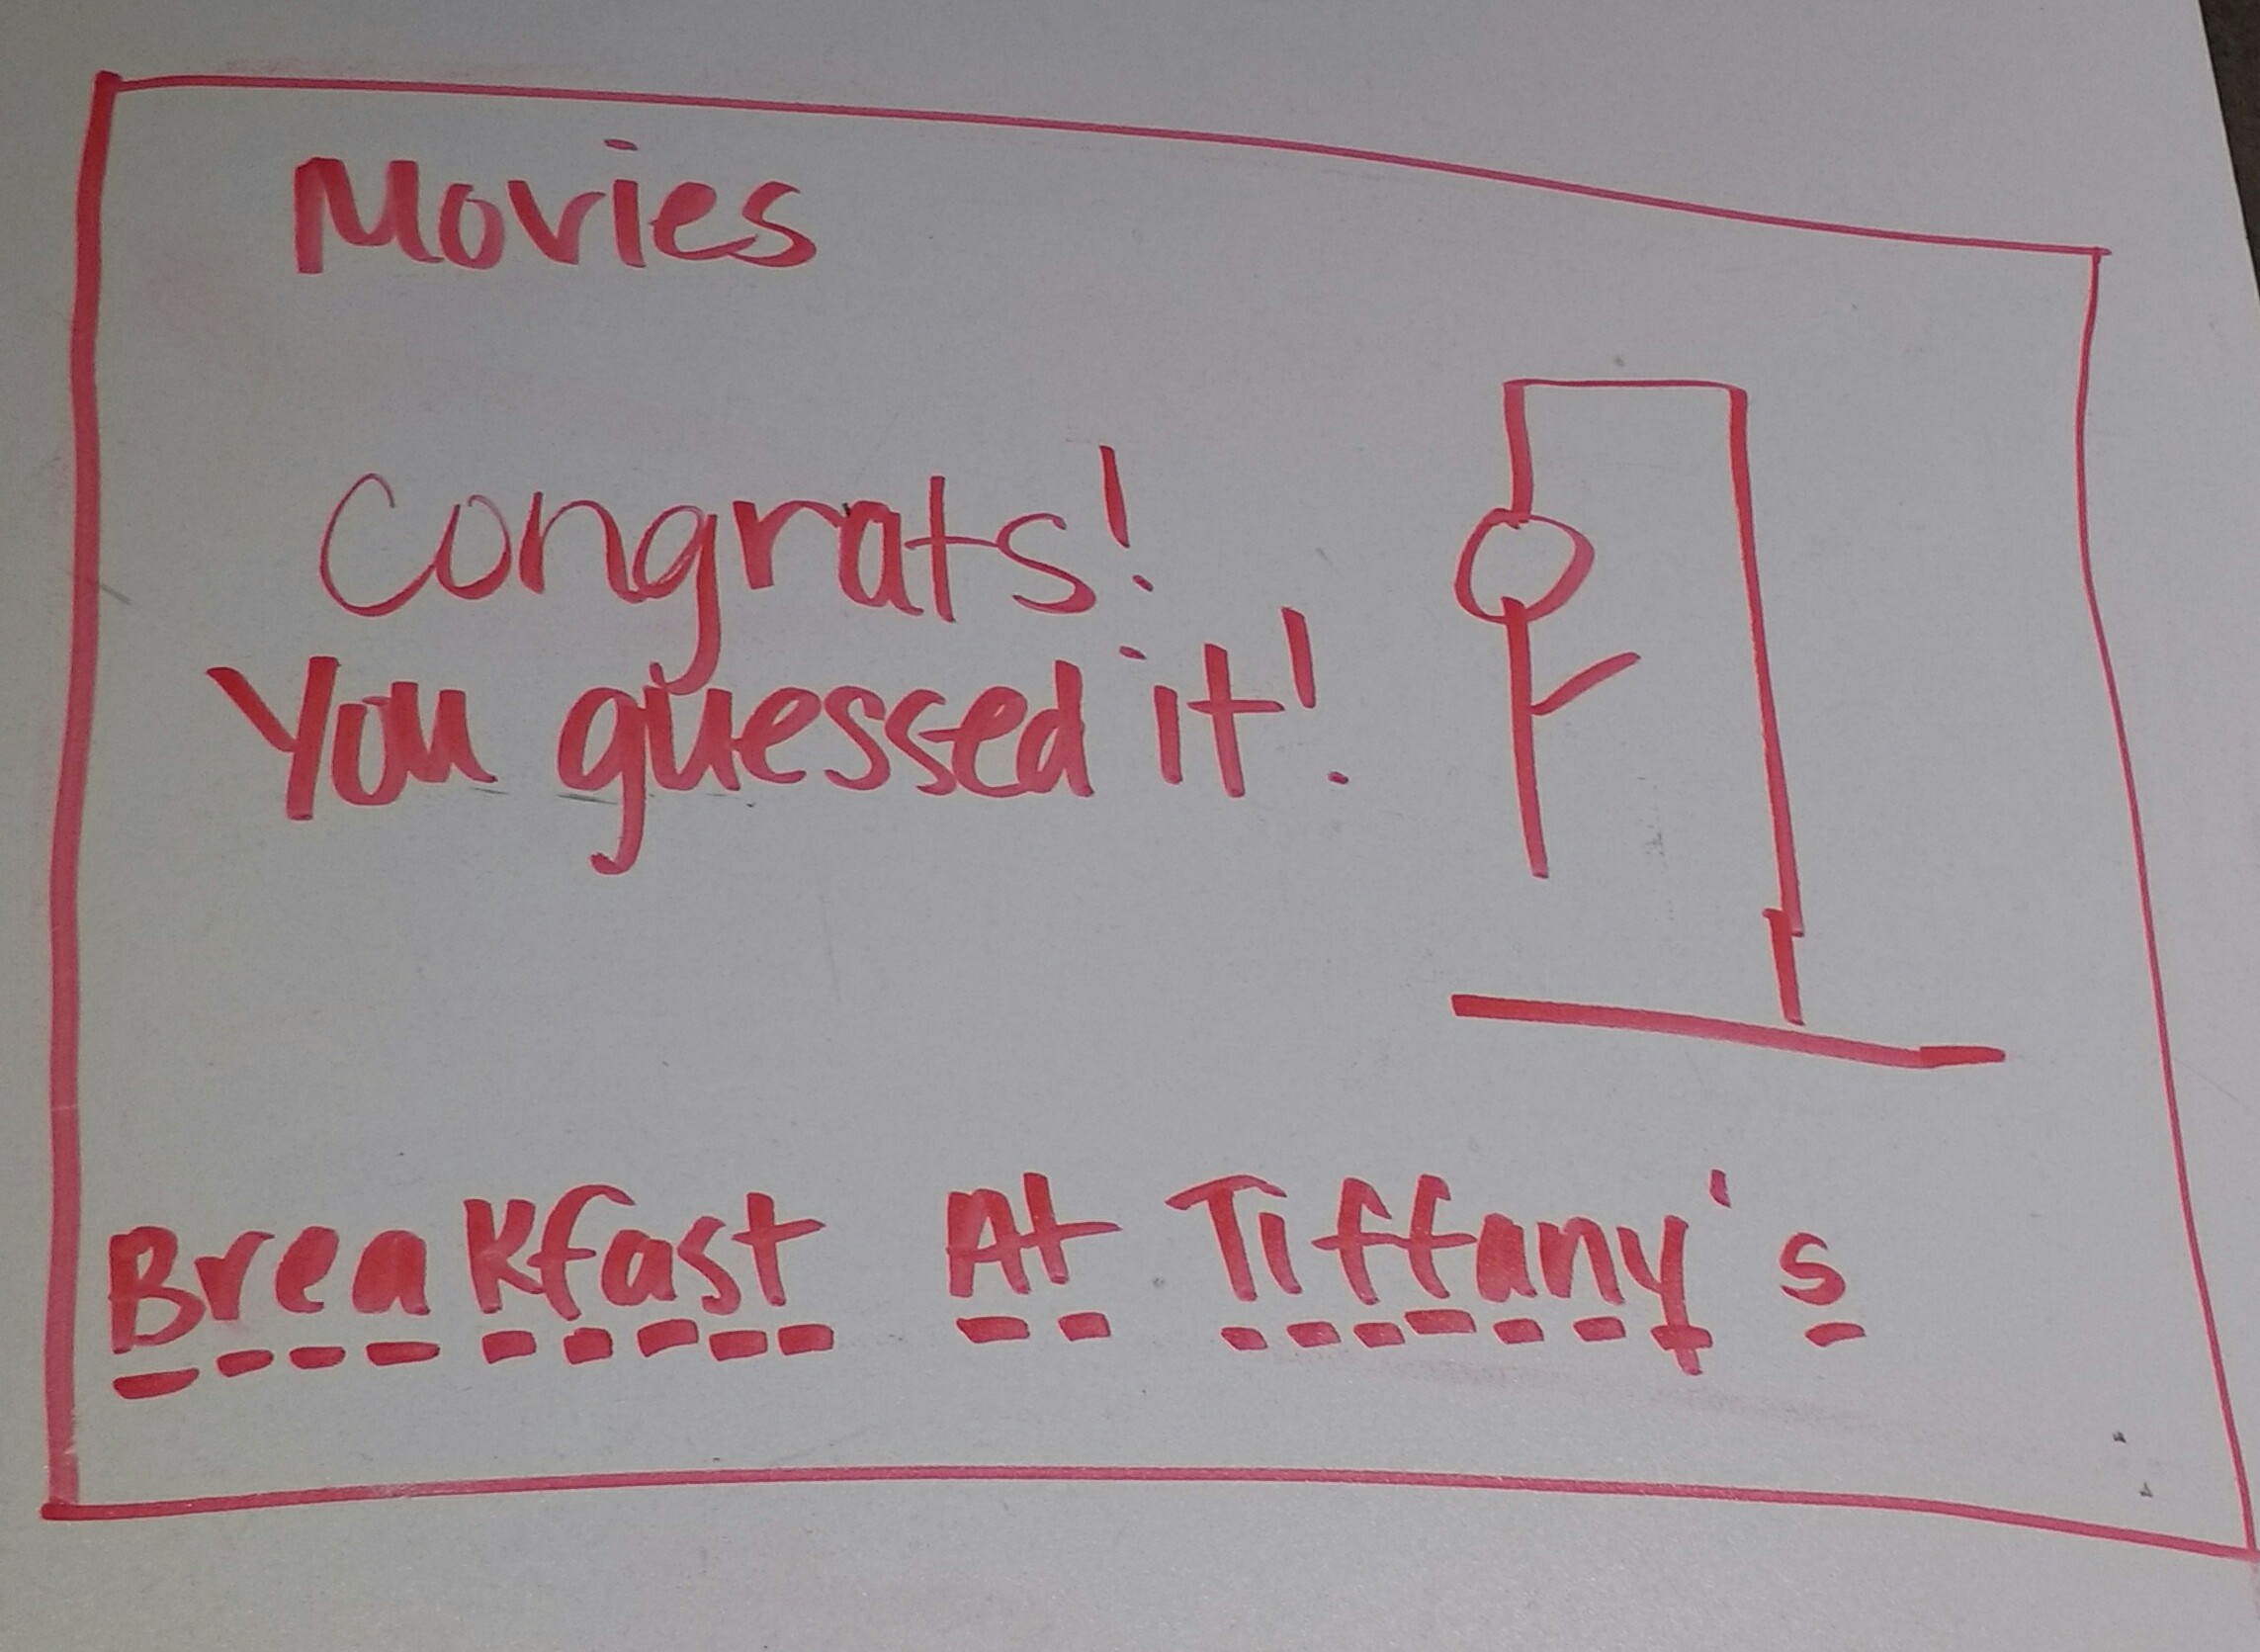 Movies
Congrats!
You guessed it!
Breakfast At Tiffany's